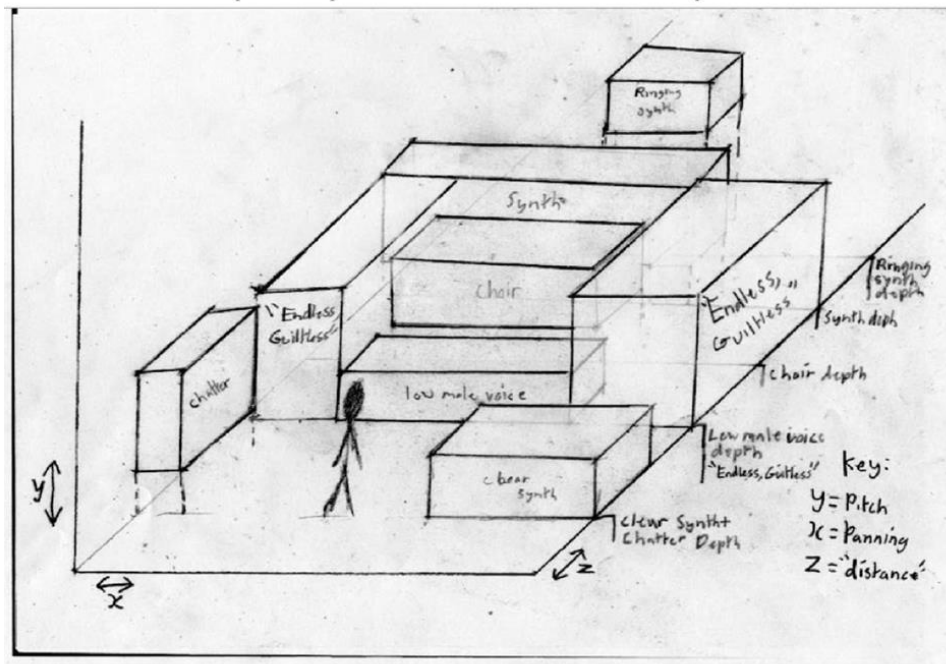 Ringing
synth
Synth
"Endless
Guiltless"
chair
"Endless,"
Guiltless
chatter
low male voice
clear
synth
Ringing
synth
depth
Synth depth
Chair depth
Low male voice
depth
"Endless, Guiltless"
Clear Synth+
Chatter Depth
Key:
y = Pitch
x = Panning
z = "distance"
y
x
z